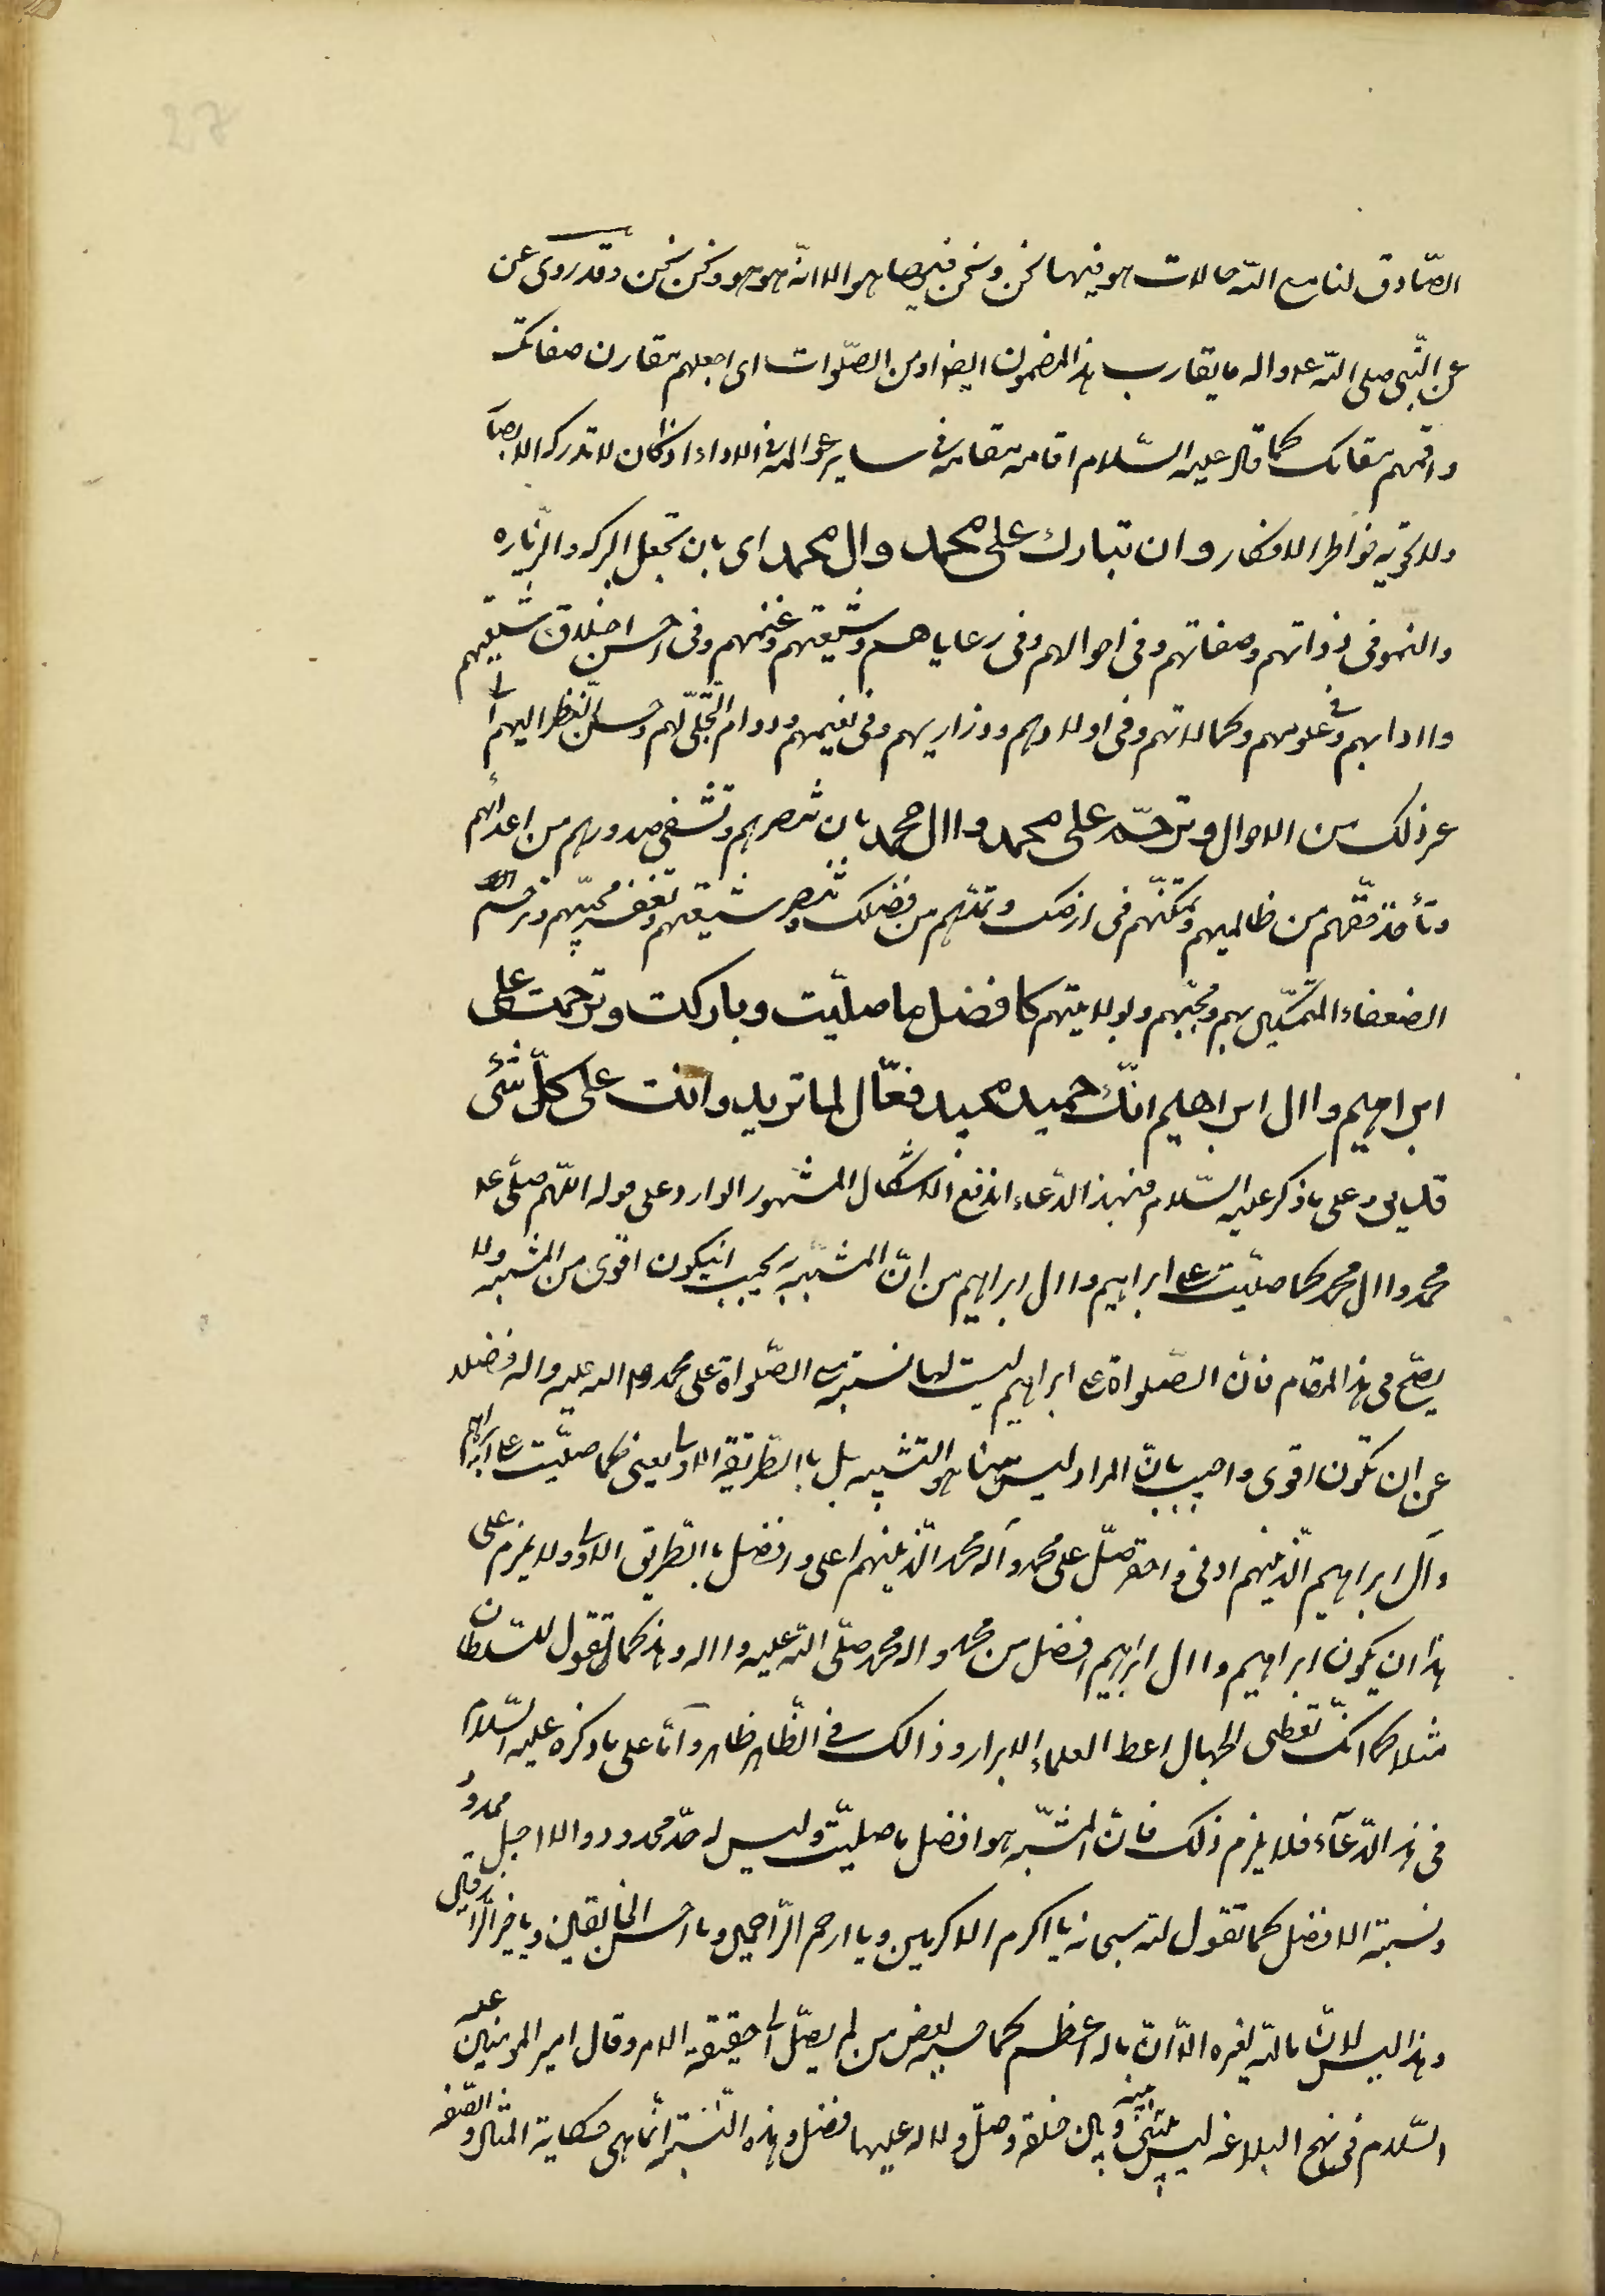 الصّادق لنا مع اللّه حالات هو فيها نحن ونحن فيها هو الا انّه هو هو ونحن نحن وقد روى عن
عن النّبى صلى اللّه عليه واله ما يقارب هذا المضمون ايضا ومن الصّلوات اى اجعلهم مقارن صفاتك
واقمهم مقامك كما قال عليه السّلام اقامه مقامه فى ساير عوالمه فى الاداء اذ كان لا تدركه الابصا
ولا تحويه خواطر الافكار وان تبارك على محمد وال محمد اى بان تجعل البركه والزياره
والنمو فى ذواتهم وصفاتهم وفى احوالهم وفى رعاياهم وشيعتهم وغنمهم وفى احسن اخلاق شيعتهم
وااداابهم وفى علومهم وكمالاتهم وفى اولادهم وذراريهم وفى نعيمهم ودوام التّجلّى لهم وحسن النّظر اليهم الى
غر ذلك من الاحوال وترحّم على محمد واال محمد بان تنصرهم وتشفى صدورهم من اعدائهم
وتأخذ حقّهم من ظالميهم وتمكنّهم فى ارضك وتمدّهم من فضلك وتنصر شيعتهم وتغفر محبّيهم وترحم
الضعفاء المتمسّكين بهم وبمحبّتهم وبولايتهم كافضل ما صلّيت وباركت وترحّمت على
ابراهيم واال ابراهيم انّك حميد مجيد فعّال لما تريد وانت على كلّ شئى
قدير وعلى ما ذكر عليه السّلام فى هذا الدّعاء اندفع الاشكال المشهور الوارد على قوله اللّهم صلّ على
محمد واال محمد كما صلّيت على ابراهيم واال ابراهيم من انّ المشبّه به يجب انيكون اقوى من المشبه ولا
يصحّ فى هذا المقام فانّ الصّلواة على ابراهيم ليست لها نسبة الى الصّلواة على محمد صلى الله عليه واله فضلا
عن ان تكون اقوى واجيب بانّ المراد ليس هنا هو التشبيه بل بالطّريقة الاولى يعنى كما صلّيت على ابراهيم
وآل ابراهيم الّذينهم ادنى واحقر صلّ على محمد وآل محمد الّذينهم اعلى وافضل بالطّريق الاولى ولا يلزم على
هذا ان يكون ابراهيم واال ابراهيم افضل من محمد وال محمد صلّى اللّه عليه واله وهذا كما تقول للسّلطان
مثلا كما انّك تعطى الجهال اعط العلماء الابرار وذالك فى الظّاهر ظاهر وامّا على ما ذكره عليه السّلام
فى هذا الدّعآء فلا يلزم ذلك فانّ المشبّه هو افضل ما صلّيت وليس له حدّ محدود ولا اجل ممدود
ونسبته الافضل كما تقول للّه سبحانه يا اكرم الاكرمين ويا ارحم الرّاحمين ويا احسن الخالقين ويا خير الرّازقين
وهذا ليس لانّ مالله لغيره الّا انّ ماله اعظم كما حسبه بعض من لم يصل الى حقيقة الامر وقال امير المومنين عليه
السّلام فى نهج البلاغه ليس بينه وبين خلقه وصل ولا له عليها فضل وهذه النّسبة انّما هى حكاية المثال والصّفه